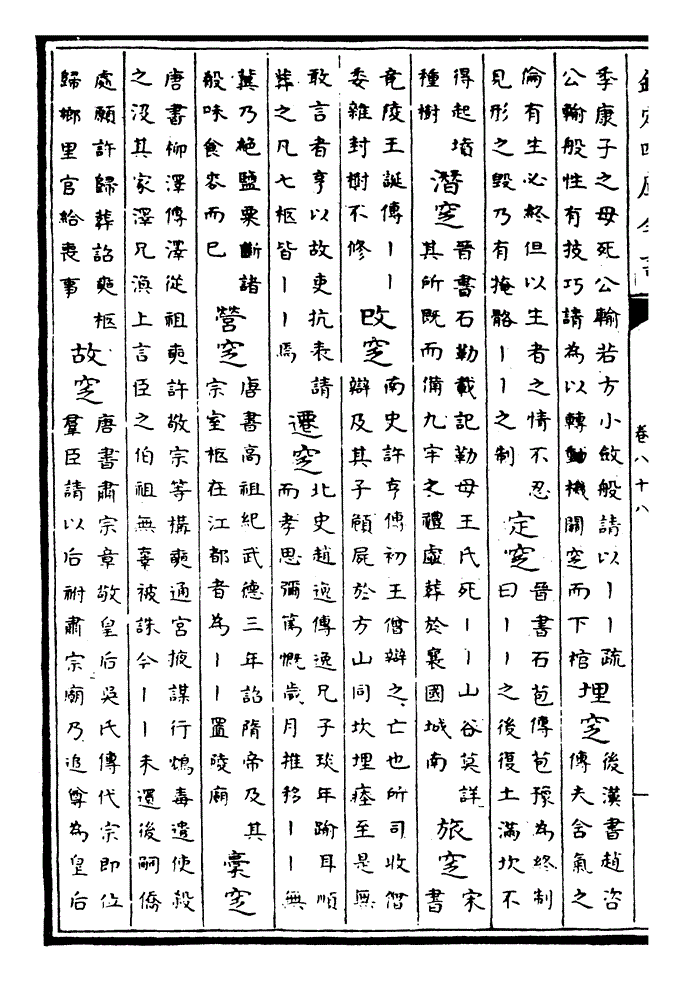 欽定四庫全書
卷八十八
季康子之母死公輸若方小斂般請以丨丨疏
公輸般性有技巧請為以轉動機關窆而下棺
埋窆
後漢書趙咨
傳夫含氣之
倫有生必終但以生者之情不忍
見形之毀乃有掩骼丨丨之制
定窆
晉書石苞傳苞豫為終制
曰丨丨之後復土滿坎不
得起墳
種樹
潛窆
晉書石勒載記勒母王氏死丨丨山谷莫詳
其所既而備九牢之禮虛葬於襄國城南
旅窆
宋
書
竟陵王誕傳丨丨
委雜封樹不修
改窆
南史許亨傳初王僧辯之亡也所司收僧
辯及其子頠屍於方山同坎埋瘞至是無
敢言者亨以故吏抗表請
葬之凡七柩皆丨丨焉
遷窆
北史趙逸傳逸兄子琰年踰耳順
而孝思彌篤慨歲月推移丨丨無
冀乃絶鹽粟斷諸
殽味食麥而已
營窆
唐書高祖紀武德三年詔隋帝及其
宗室柩在江都者為丨丨置陵廟
槀窆
唐書柳澤傳澤從祖奭許敬宗等構奭通宫掖謀行鴆毒遣使殺
之沒其家澤兄渙上言臣之伯祖無辜被誅今丨丨未還後嗣僑
處願許歸葬詔奭柩
歸鄉里官給喪事
故窆
唐書肅宗章敬皇后吳氏傳代宗即位
羣臣請以后祔肅宗廟乃追尊為皇后